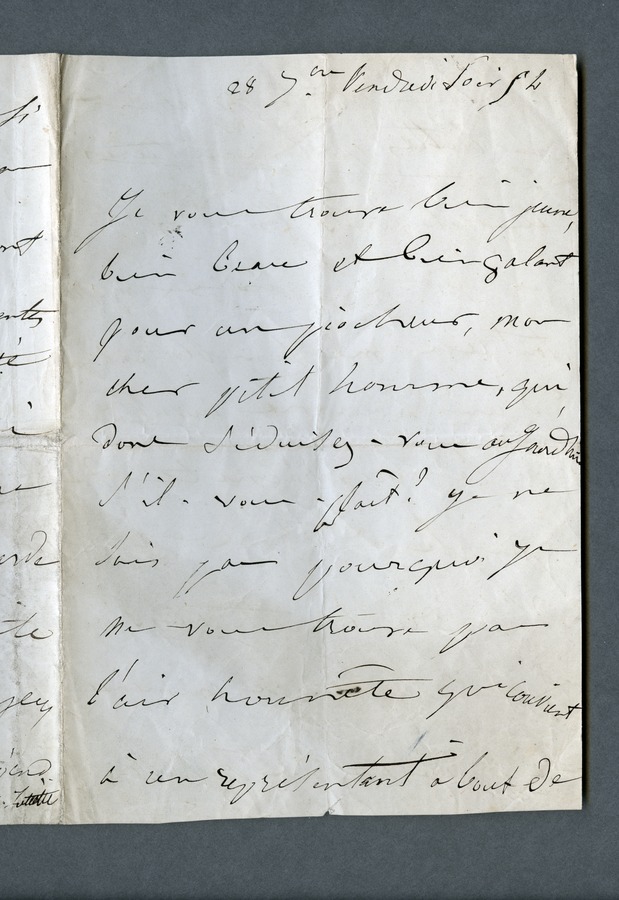 28 7bre Vendredi soir 5 h
Je vous trouve bien jeune,
bien beau et bien galant
pour un piocheur, mon
cher petit homme, qui
donc séduisez-vous aujourd'hui
s'il-vous-plaît? Je ne
sais pas pourquoi je
ne vous trouve pas
l'air honnête qui convient
à un représentant à bout de